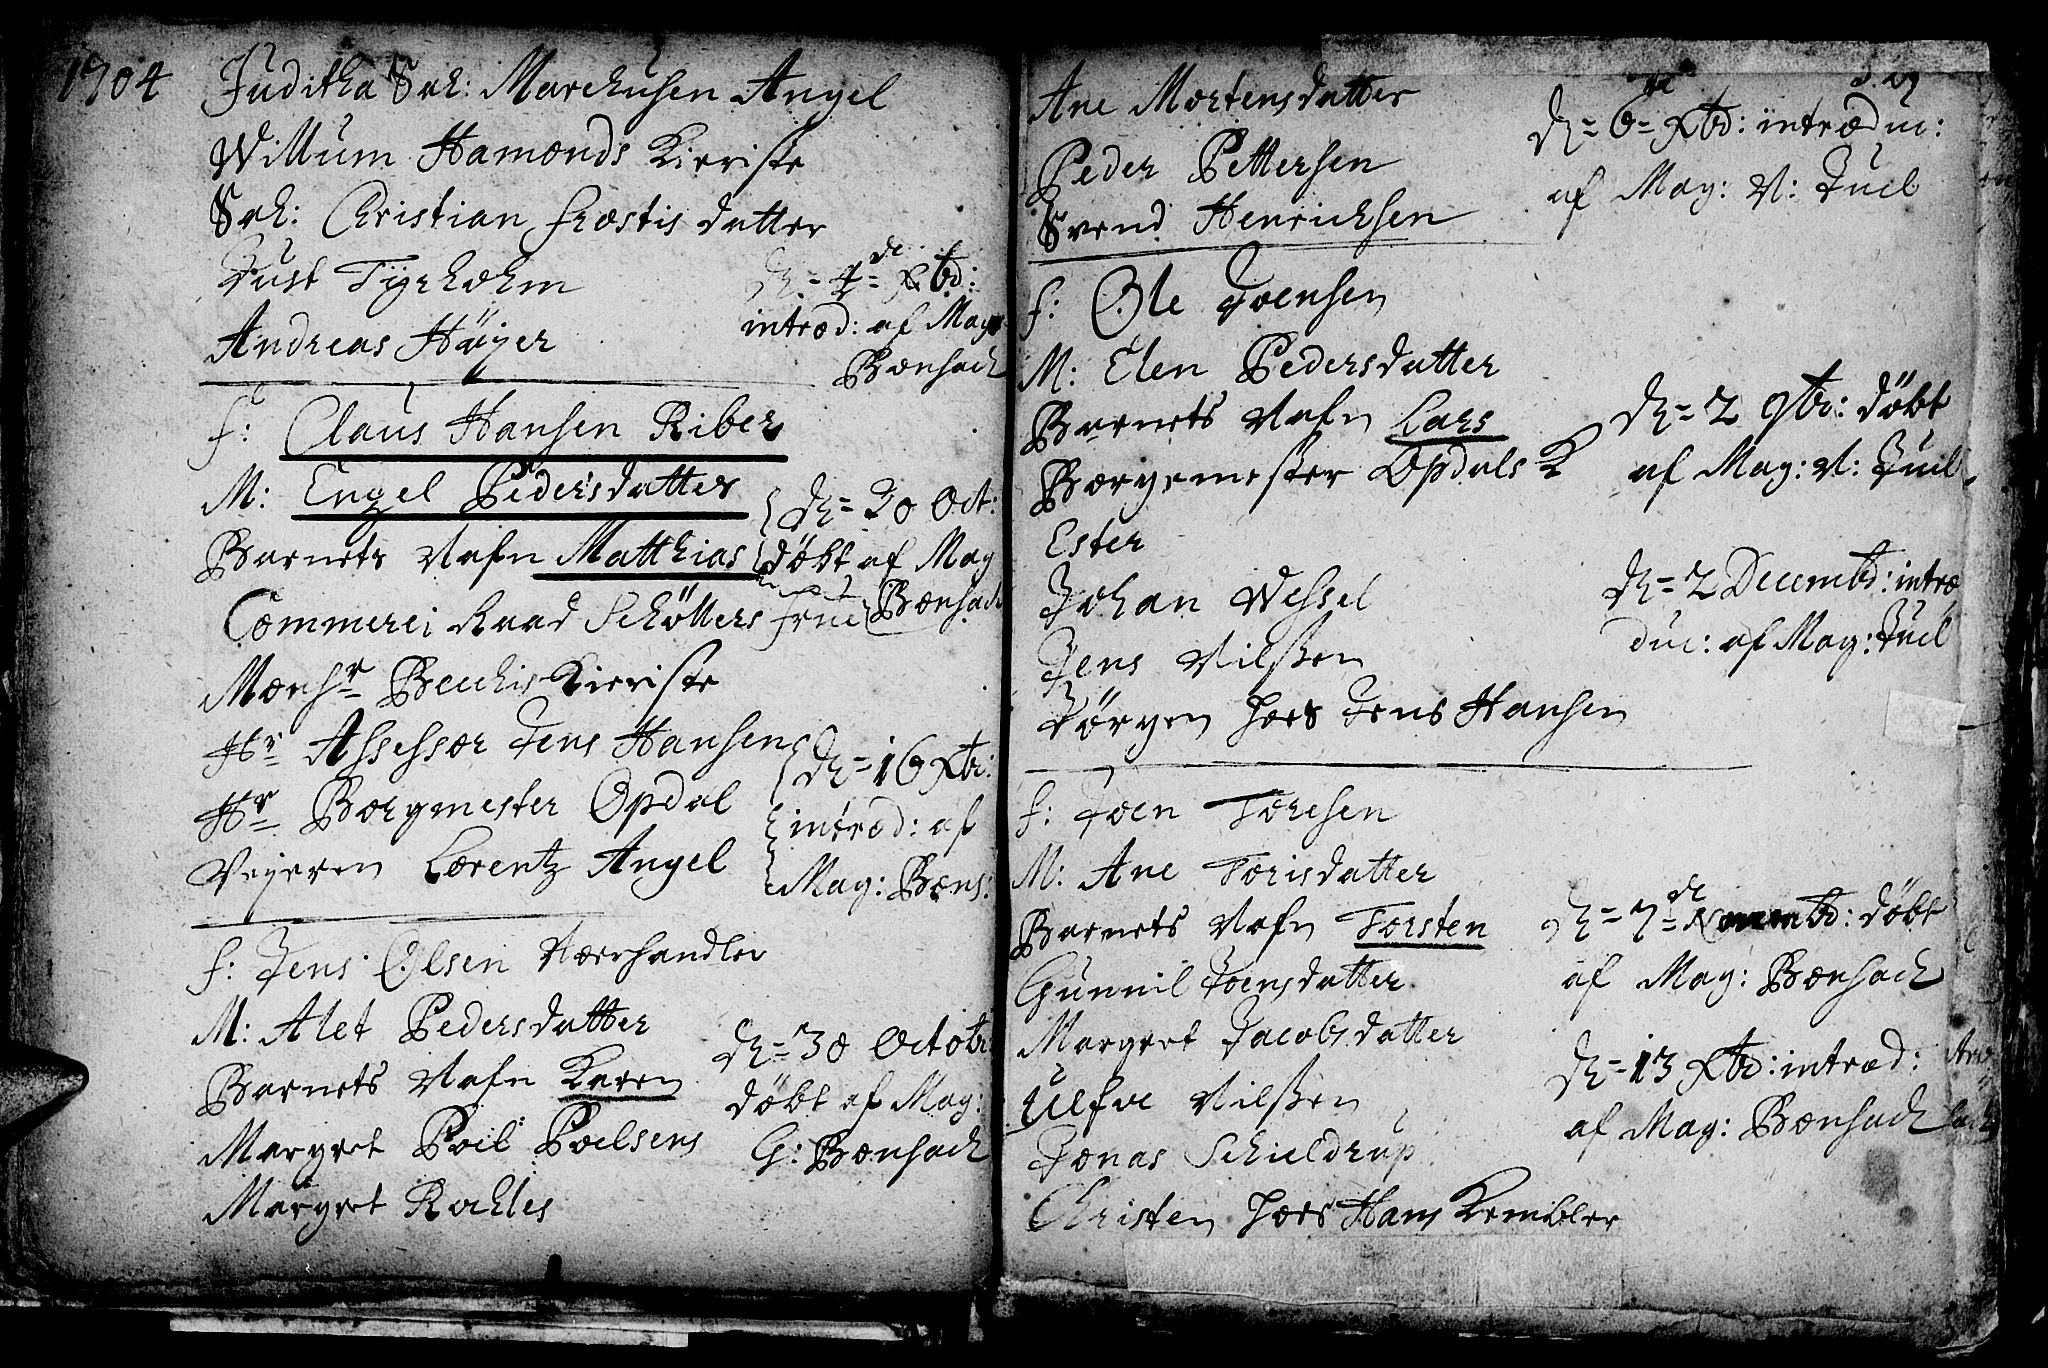 1704
Juditha Sal: Marchusen Angel
Willum Hamonds Kieriste
Sal: Christian Frostis datter
Just Tyrholm
Andreas Höyer
d: 4de Xbr:
introd: af Mag
Bonsach
F: Claus Hansen Riber
M: Engel Pedersdatter
Barnets Nafn Matthias
Commerci Raad Schöllers Frue
d: 30 Oct:
döbt af Mag
Bonsach
Monsr Bechis Kieriste
Hr Assessor Jens Hansen
Hr Borgmester Opdal
Vejeren Lorentz Angel
d: 16 Xbr:
introd: af
Mag: Bons:
F: Jens Olsen
M: Alet Pedersdatter
Barnets Nafn Karen
Margret Poel Poelsens
Margret Rochles
d: 30 Octobr
döbt af Mag:
G: Bonsach
Ane Mortensdatter
Peder Pettersen
Svend Henrichsen
d: 6 Xbr: introduc:
af Mag: N: Juel
F: Ole Joensen
M: Elen Pedersdatter
Barnets Nafn Lars
Borgemester Opdals K
Ester
Johan Wessel
Jens Nilssen
Jörgen hoes Jens Hansen
d: 2 9br: döbt
af Mag: N: Juel
d: 2 Decembr: intro
duc: af Mag: Juel
F: Joen Toresen
M: Ane Torisdatter
Barnets Nafn Torsten
Gunnil Joensdatter
Margret Jacobsdatter
Ulfve Nilssen
Jonas Schieldrup
Christen hoes Hans Kembler
d: 7de Novembr: döbt
af Mag: Bonsach
d: 13 Xbr: introd:
af Mag: Bonsach